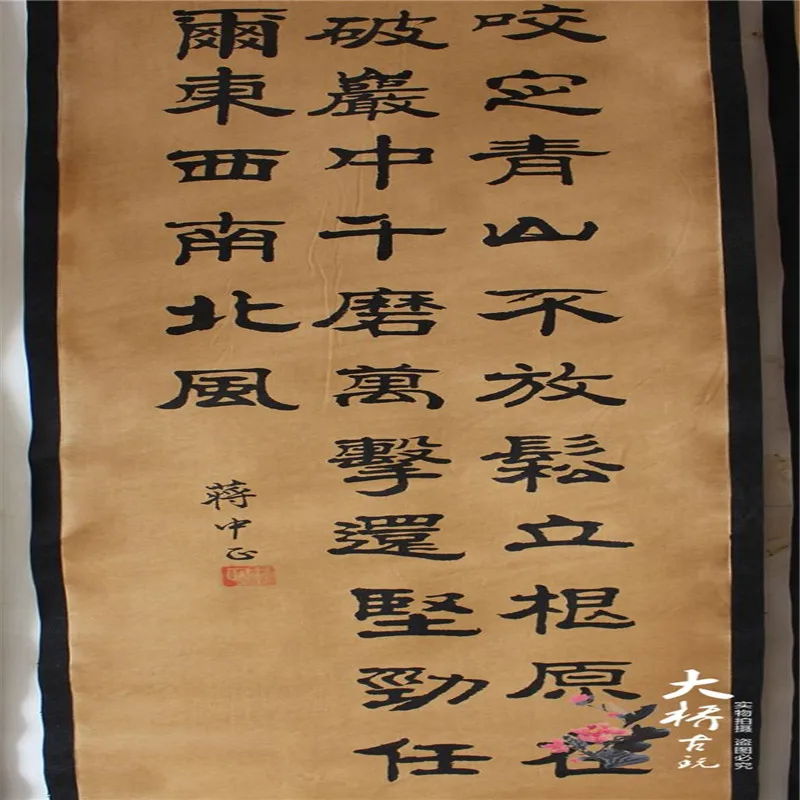 咬定青山不放鬆立根原在
破巖中千磨萬擊還堅勁任
爾東西南北風
蔣中正
大橋古玩
实物拍摄 盗图必究